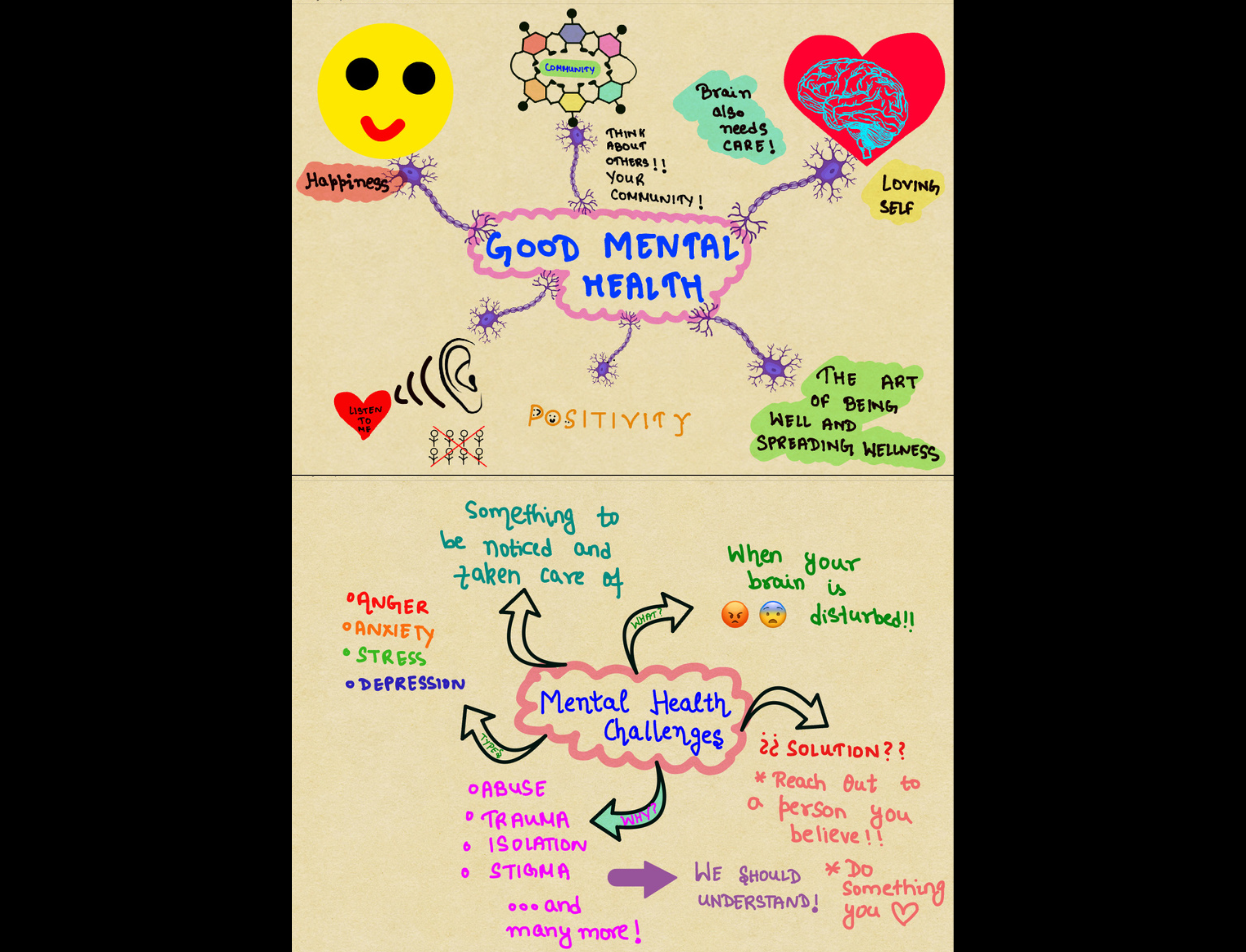 COMMUNITY
THINK
ABOUT
OTHERS!!
YOUR
COMMUNITY!
Brain
also
needs
CARE!
Happiness
LOVING
SELF
GOOD MENTAL
HEALTH
LISTEN
TO
ME
POSITIVITY
THE ART
OF BEING
WELL AND
SPREADING WELLNESS
Something to
be noticed and
taken care of
WHAT?
When your
brain is
disturbed!!
ANGER
ANXIETY
STRESS
DEPRESSION
TYPES
Mental Health
Challenges
¿¿ SOLUTION??
* Reach Out to
a person you
believe!!
* Do
something
you ♡
WHY?
ABUSE
TRAUMA
ISOLATION
STIGMA
... and
many more!
WE SHOULD
UNDERSTAND!